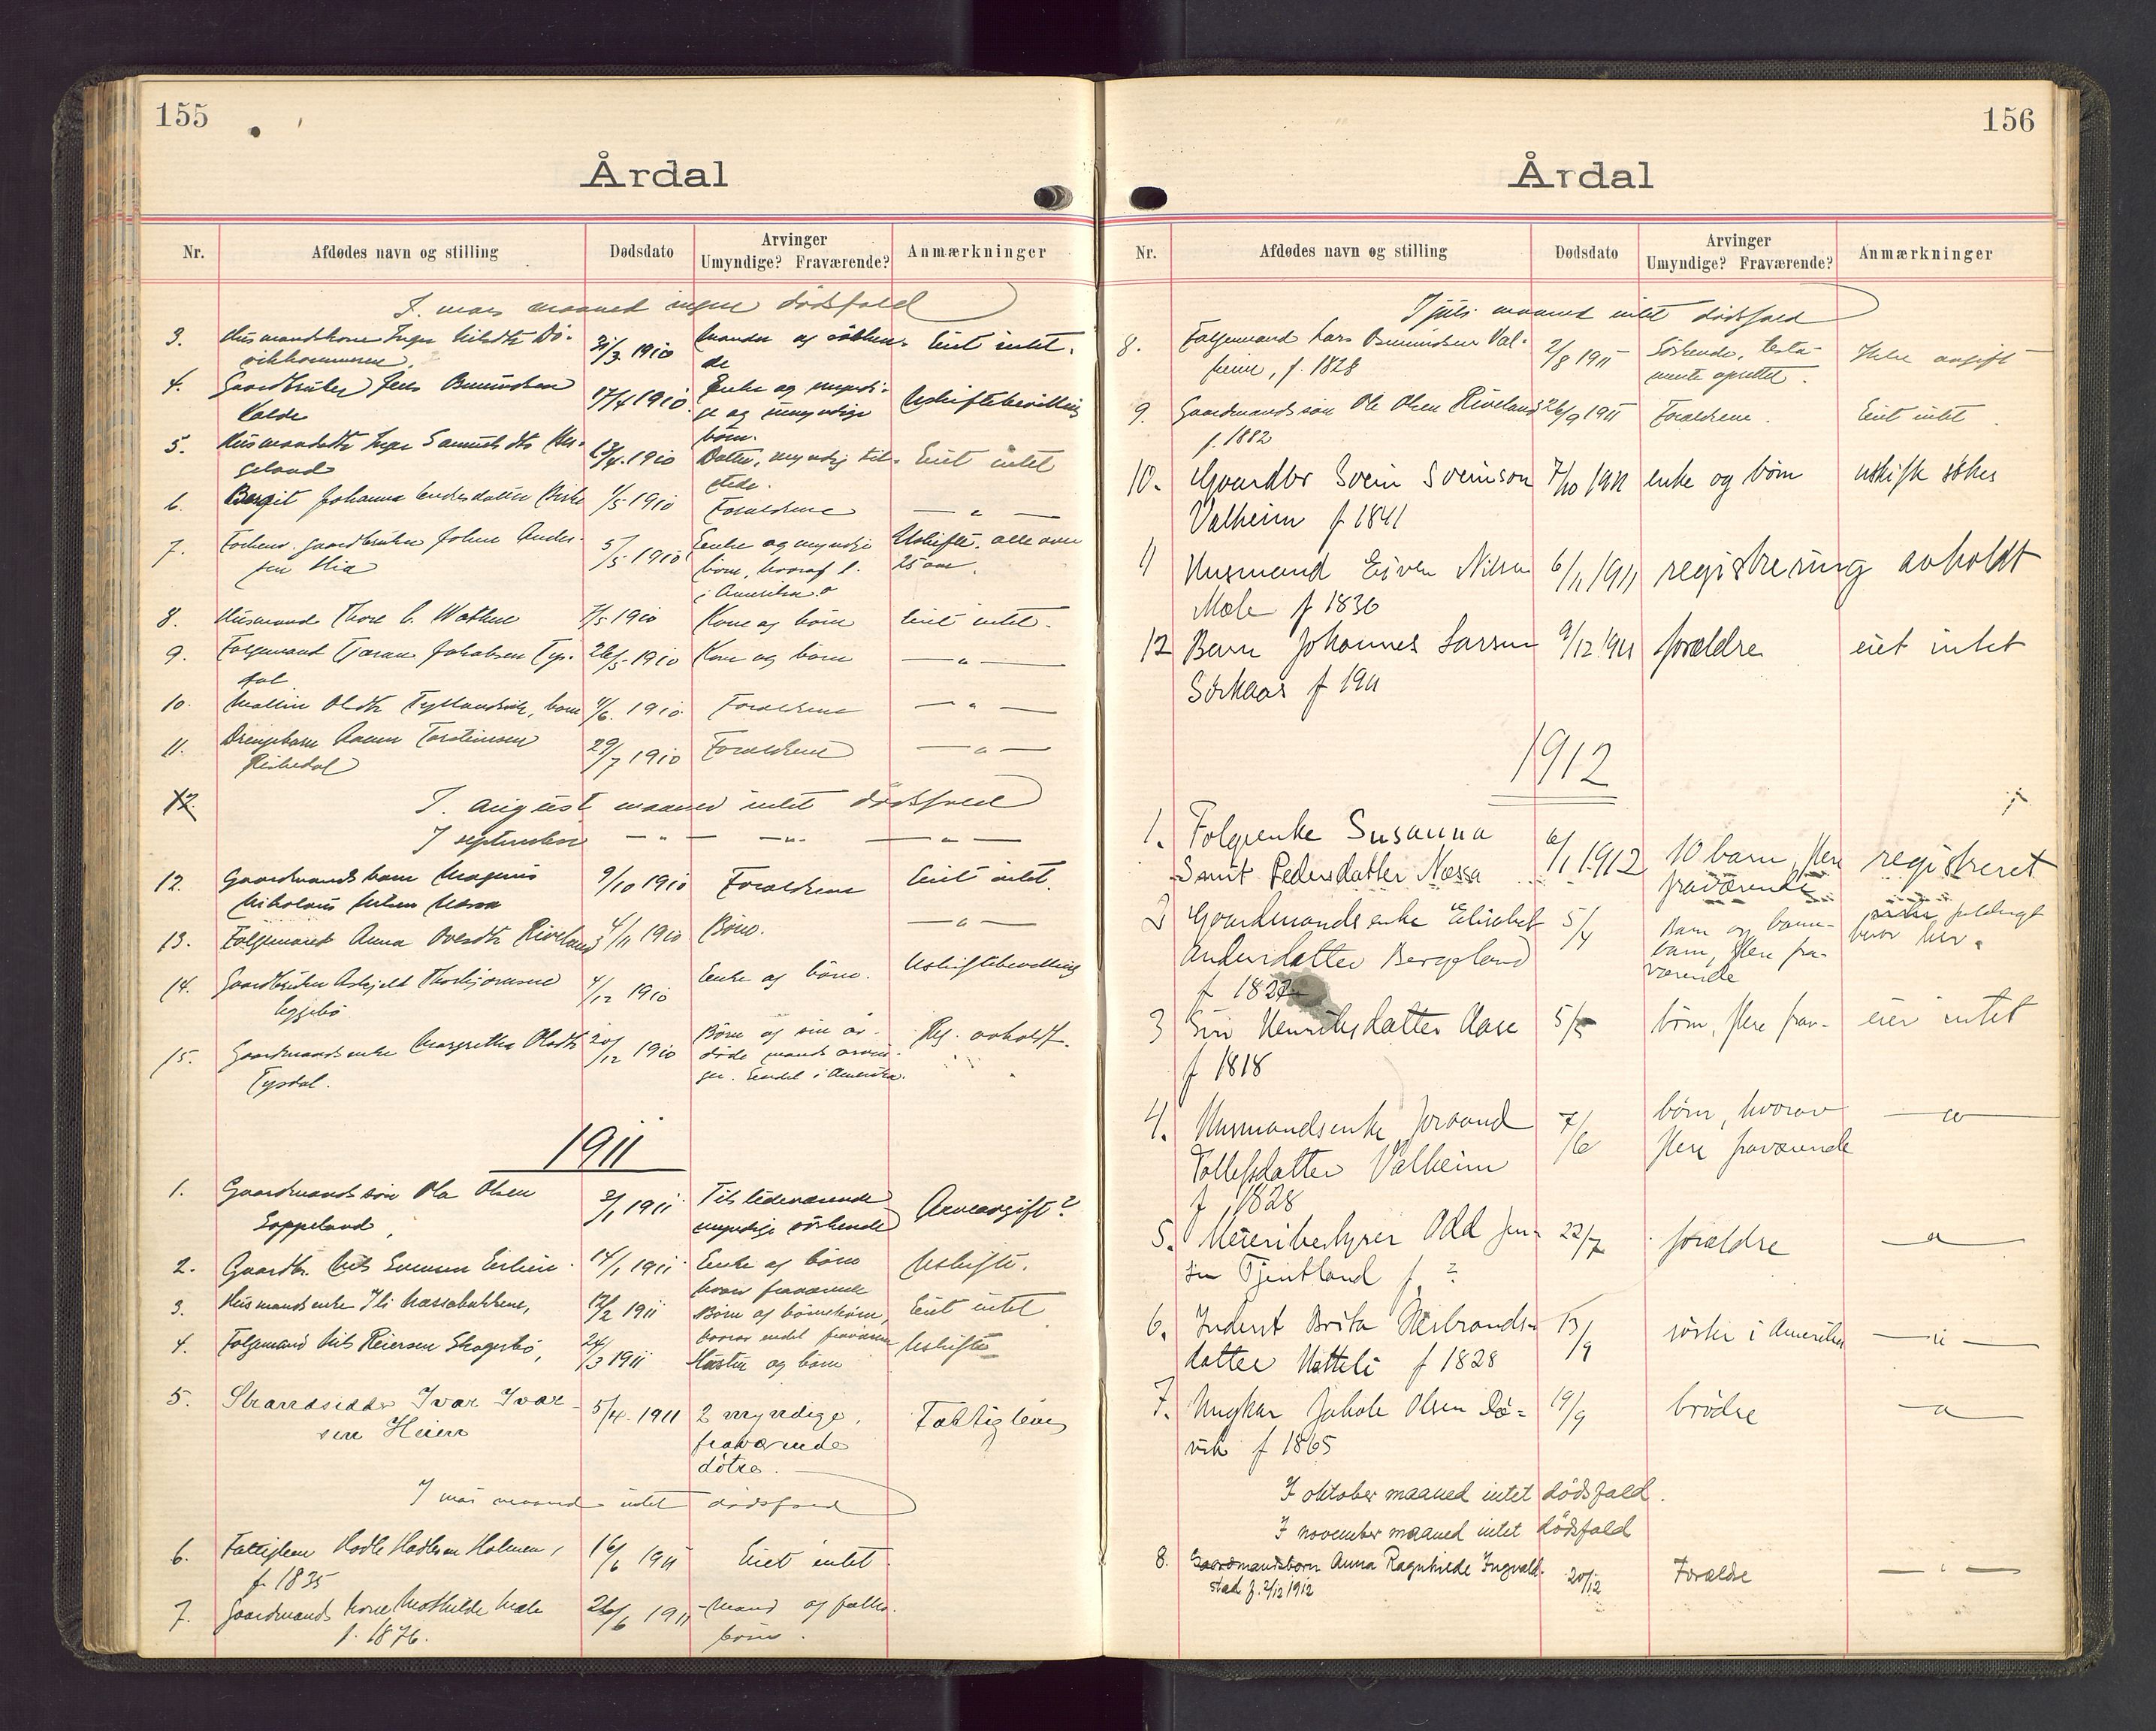 155
Årdal
Nr. Afdødes navn og stilling Dødsdato Arvinger Umyndige? Fraværende? Anmærkninger
I mars maaned ingen dødsfald
3. Husmandskone Inger 31/3 1910 Eiet intet.
4. Gaardbruker Osmundsen 17/4 1910 Enke og myndi- Uskiftebevilling
Valde ge og umyndige
børn.
5. Inger Samuelsdtr 13/4 1910 Datter, myndig til- Eiet intet
geland stede.
6. Bergit Johanna 1/5 1910 Forældrene — " —
7. gaardbruker Johan Ander- 5/5 1910 Enke og myndige Uskifte. alle over
sen Mia børn, hvoraf 1 25 aar.
i Amerika.
8. Husmand Thore 7/5 1910 Kone og børn Eiet intet.
9. Folgemand Tjøran Jakobsen Tys- 26/5 1910 Kone og børn — " —
dal
10. Mallin Oldtr Tyllandsvik, barn 4/6 1910 Forældrene — " —
11. Drengebarn Torstensen 29/7 1910 Forældrene — " —
Riskedal
12. I august maaned intet dødsfald
I september — " — — " — — " —
12. Gaardmandsbarn Magnus 9/10 1910 Forældrene Eiet intet.
Nikolaus Nessa
13. Folgemand Anna Riveland 4/11 1910 Børn. — " —
14. Gaardbruker Askjeld Thorbjørnsen 4/12 1910 Enke og børn. Uskiftebevilling
Eggebø
15. Gaardmandsenke Margretha Oldtr 20/12 1910 Børn og sin af- Reg. avholdt.
Tysdal. døde mands arvin-
ger. Endel i Amerika.
1911
1. Gaardmandssøn Ola Olsen 3/1 1911 Tilstedeværende Arveavgift?
Soppeland, myndige søskende
2. Gaardbr. Nils 14/1 1911 Enke og børn Uskifte.
hvorav fraværende
3. Husmandsenke Ili Nessabakkene, 12/2 1911 Børn og børnebørn, Eiet intet
hvorav endel fraværen
4. Folgemand Nils Reiersen 24/3 1911 Hustru og børn Uskifte
5. Strandsidder Ivar Ivar- 5/4 1911 2 myndige, Fattiglem
sen Heien fraværende
døtre.
I mai maaned intet dødsfald
6. Fattiglem Hadle Hadlesen Holmen, 16/6 1911 Eiet intet
f. 1835
7. Gaardmandskone Mathilde Mæle 26/6 1911 Mand og fælles
f. 1876. børn.
156
Årdal
Nr. Afdødes navn og stilling Dødsdato Arvinger Umyndige? Fraværende? Anmærkninger
I juli maaned intet dødsfald
8. Folgemand Lars Osmundsen Val- 2/8 1911 Søskende, testa- Ikke avgift
heim, f. 1828 mente oprettet.
9. Gaardmandssøn Ole Olsen Riveland 26/9 1911 Forældrene. Eiet intet.
f. 1882
10. Gaardbr Svein Sveinson 7/10 1911 enke og børn uskifte søkes
Valheim f 1841
11 Husmand Eiven Nilsen 6/11 1911 registrering avholdt
Mæle f 1836
12 Barn Johannes Larsen 9/12 1911 forældre eiet intet
Sørskaar f 1911
1912
1. Folgeenke Susanna 6/1 1912 10 barn, flere registreret
Smit Pedersdatter Nessa fraværende
2 Gaardmandsenke Elisabet 5/4 Barn og barne-
Andersdatter Bergeland barn, flere fra-
f 1827 værende
3 Siri Henriksdatter Aase 5/5 børn, flere frav- eier intet
f 1818
4. Husmandsenke Joraand 7/6 børn, hvorav — " —
Tollefsdatter Valheim flere fraværende
f 1828
5. Meieribestyrer Odd Jen- 22/7 forældre — " —
sen Tjentland f. ?
6. Inderst Brita Asbrands- 13/9 søster i Amerika — " —
datter Natteli f 1828
7. Ungkar Jakob Olsen Dø- 19/9 brødre — " —
vik f 1865
I oktober maaned intet dødsfald.
I november maaned intet dødsfald
8. Gaardmandsbarn Anna Ragnhilde Ingvald- 20/12 Forældre — " —
stad f. 2/12 1912